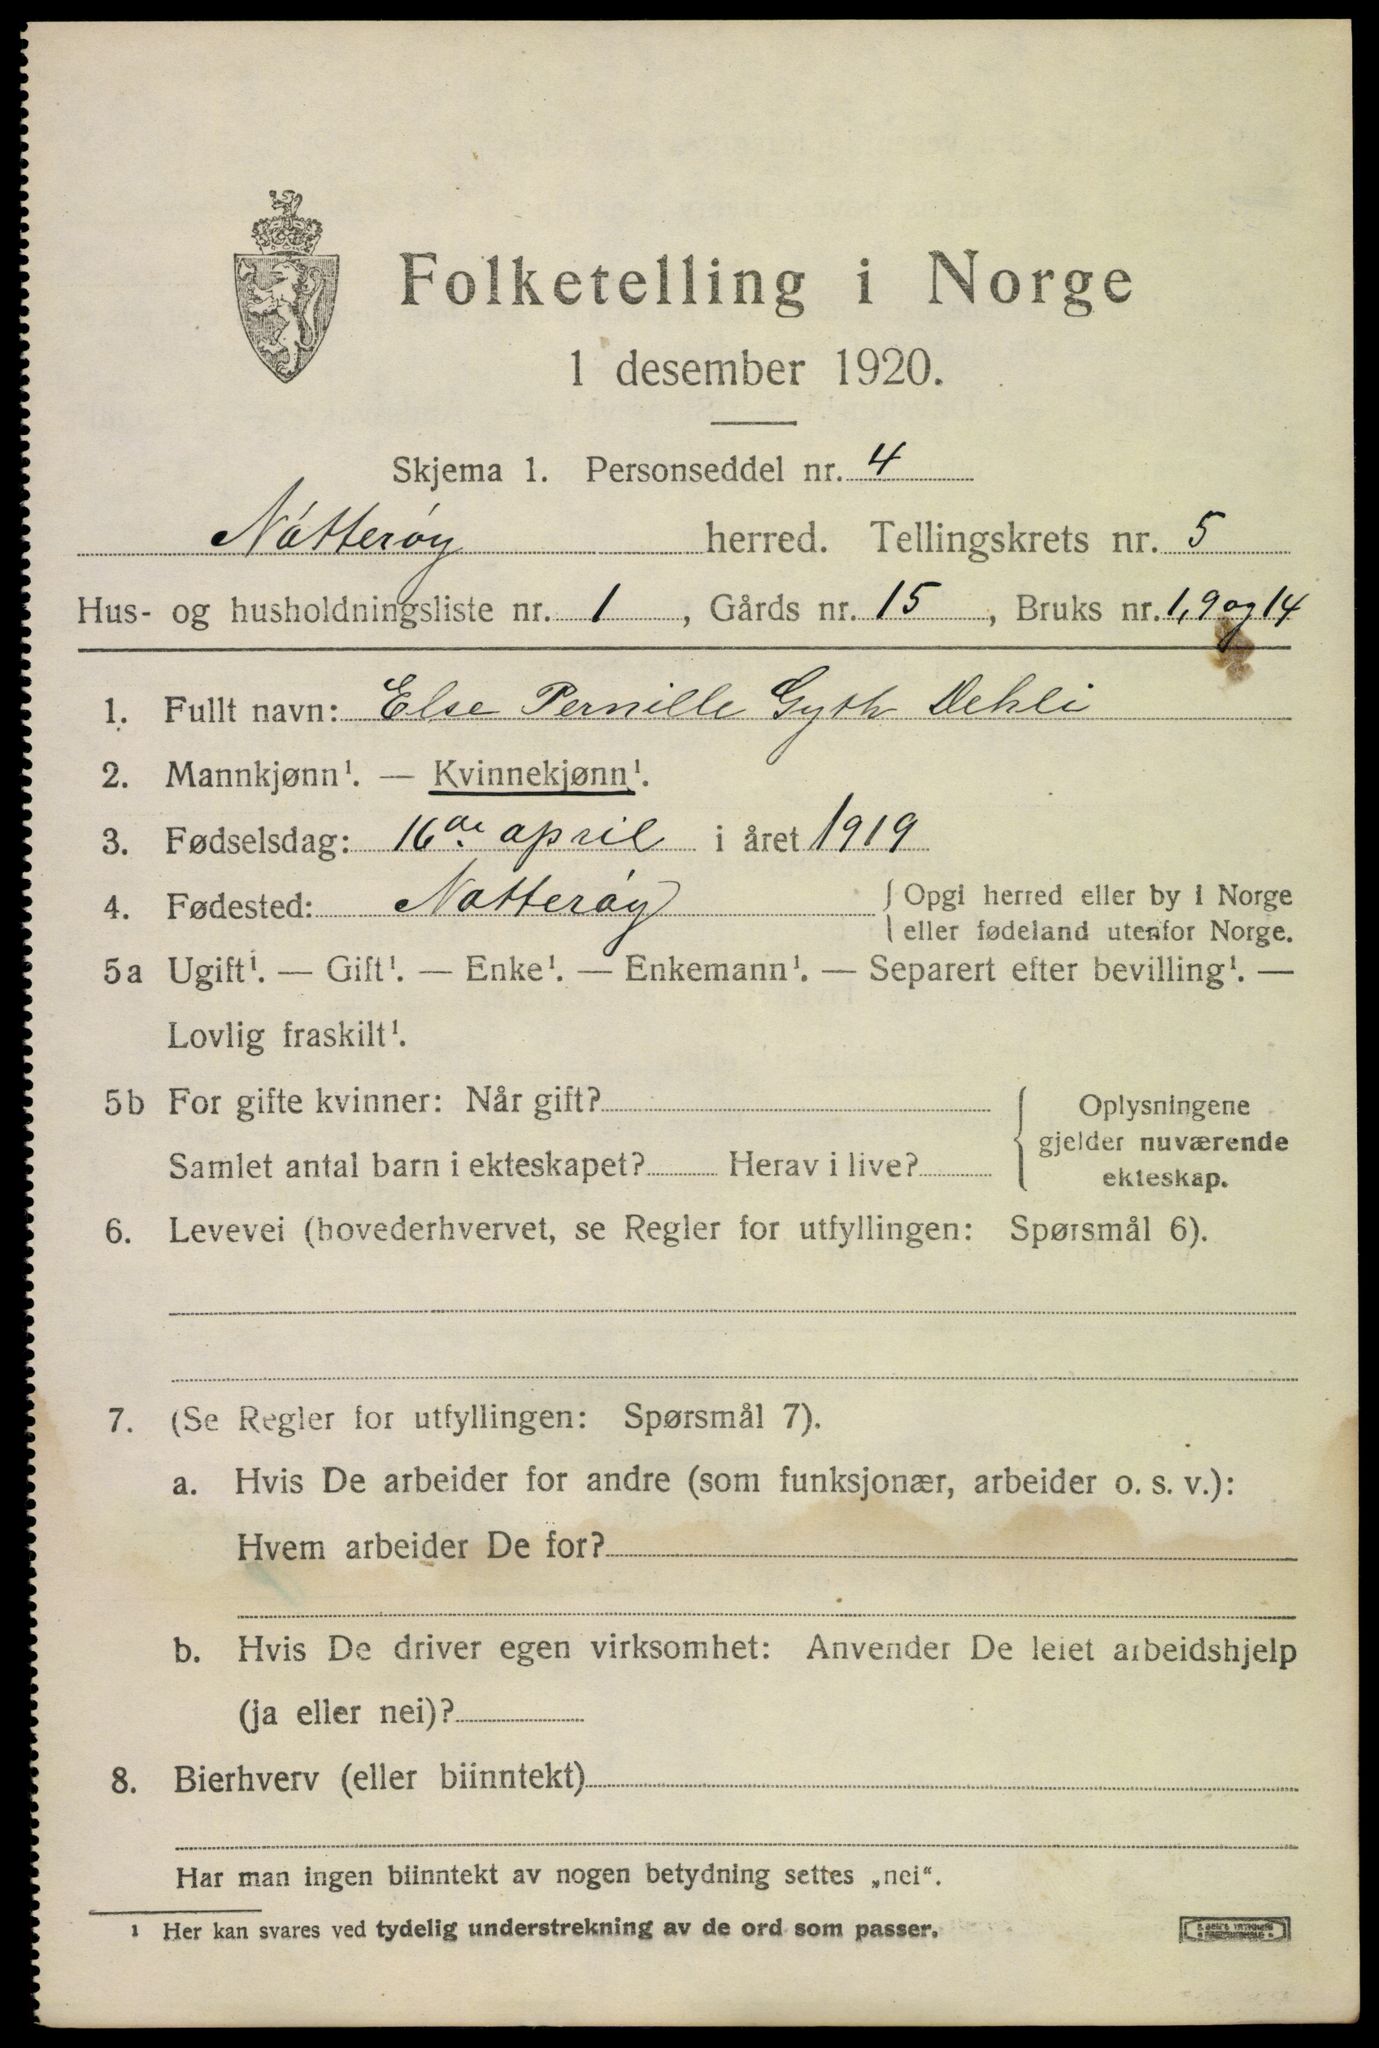 Folketelling i Norge
1 desember 1920.
Skjema 1. Personseddel nr. 4
Nøtterøy herred. Tellingskrets nr. 5
Hus- og husholdningsliste nr. 1, Gårds nr. 15, Bruks nr. 1, 9 og 14
1. Fullt navn: Else Pernille Gyth Dehli
2. Mannkjønn¹. — Kvinnekjønn¹.
3. Fødselsdag: 16de april i året 1919
4. Fødested: Nøtterøy { Opgi herred eller by i Norge
eller fødeland utenfor Norge.
5a Ugift¹. — Gift¹. — Enke¹. — Enkemann¹. — Separert efter bevilling¹. —
Lovlig fraskilt¹.
5b For gifte kvinner: Når gift? { Oplysningene
gjelder nuværende
Samlet antal barn i ekteskapet? Herav i live?
ekteskap.
6. Levevei (hovederhvervet, se Regler for utfyllingen: Spørsmål 6).
7. (Se Regler for utfyllingen: Spørsmål 7).
a. Hvis De arbeider for andre (som funksjonær, arbeider o. s. v.):
Hvem arbeider De for?
b. Hvis De driver egen virksomhet: Anvender De leiet arbeidshjelp
(ja eller nei)?
8. Bierhverv (eller biinntekt)
Har man ingen biinntekt av nogen betydning settes „nei“.
¹ Her kan svares ved tydelig understrekning av de ord som passer.